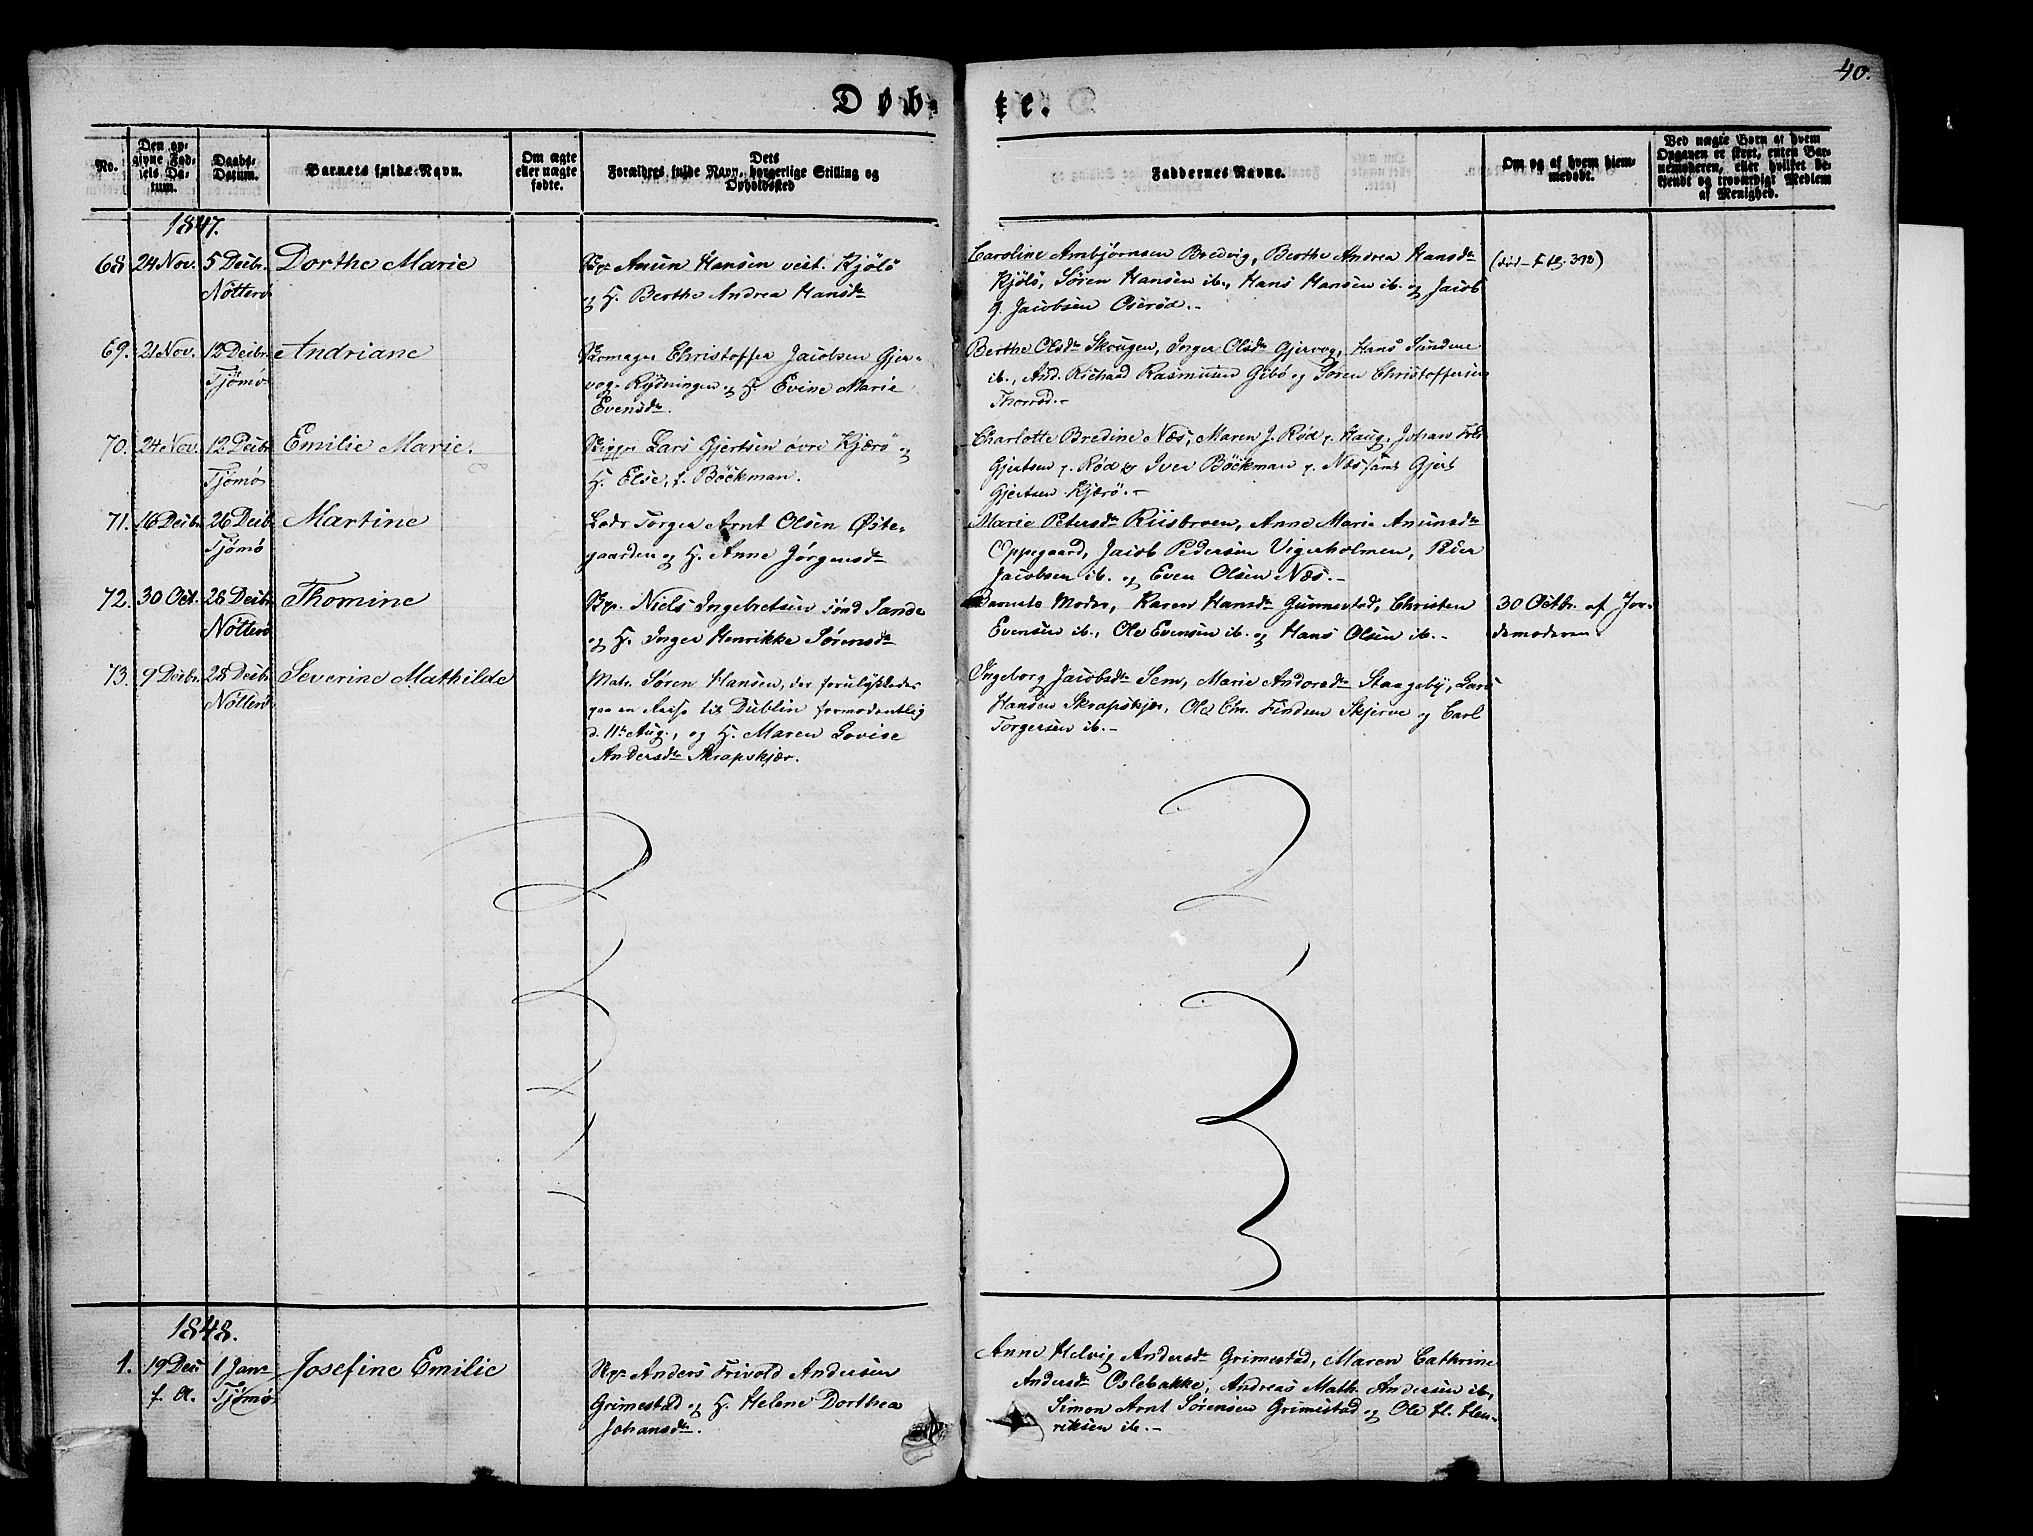 40.
Døb- te.
No.
Den op-
givne Fød-
sels Da-
tum.
Daabs-
Datum.
Barnets fulde Navn.
Om ægte
eller uægte
fødte.
Dets
Forældres fulde Navn, borgerlige Stilling og
Opholdssted
Faddernes Navne.
Om og af hvem hjem-
medøbt.
Ved uægte Børn at hvem
Opgaven er skeet, enten Bar-
nemoderen, eller hvilket be-
kjendt og troværdigt Medlem
af Menighed.
1847.
68 24 Nov. 5 Decbr. Dorthe Marie
Nötterö
Anun Hansen vest. Kjölö
og H. Berthe Andrea Hansdr
Caroline Arnbjørnsen Bredvig, Berthe Andrea Hansdr
Kjölö, Søren Hansen ib., Hans Hansen ib. og Jacob
g. Jacobsen Oserød.-
69. 21 Nov. 12 Decbr. Andriane
Tjömö
Christoffer Jacobsen Gjer-
vog-Rydningen og H. Evine Marie
Evensdr.
Berthe Olsdr Skougen, Inger Olsdr Gjervog, Hans Sundene
ib., And. Richard Rasmusen Gibö og Søren Christoffersen
Thorrød.-
70. 24 Nov. 12 Decbr. Emilie Marie.
Tjömö
Lars Gjertsen övre Kjærö og
H. Else, f. Böckman.
Charlotte Bredine Næs, Maren J. Rød p. Haug, Johan
Gjertsen p. Rød og Iver Böckman p. Næs samt Gjert
Gjertsen Kjærö.-
71. 16 Decbr. 26 Decbr. Martine
Tjömö
Torger Arnt Olsen Øste-
gaarden og H. Anne Jørgensdr
Marie Petersdr Riisbroen, Anne Marie Anunsdr
Oppegaard, Jacob Pedersen Vigerholmen, Peder
Jacobsen ib. og Even Olsen Næs.-
72. 30 Oct. 28 Decbr. Thomine
Nötterö
Niels Ingebretsen sönd Sande
og H. Inger Henrikke Sørensdr
Barnets Moder, Karen Hansdr Gunnestad, Christen
Evensen ib., Ole Evensen ib. og Hans Olsen ib.-
30 Octbr. af Jor-
demoderen.
73. 9 Decbr. 28 Decbr. Severine Mathilde
Nötterö
Matr. Søren Hansen, der forulykkedes
paa en Reise til Dublin formodentlig
d. 11te Aug., og H. Maren Lovise
Andersdr Skrapskjær.
Ingeborg Jacobsdr Sem, Marie Andersdr Staageby, Lars
Hansen Skrapskjær, Ole Chr. Findsen Skjerve og Carl
Torgersen ib.-
1848.
1. 19 Dec 1 Jan Josefine Emilie
f. A. Tjömö
Anders Frivold Andersen
Grimestad og H. Helene Dorthea
Johansdr.
Anne Helvig Andersdr Grimestad, Maren Cathrine
Andersdr Oslebakke, Andreas Math. Andersen ib.,
Simon Arnt Sørensen Grimestad og Ole H. Hen-
riksen ib.-